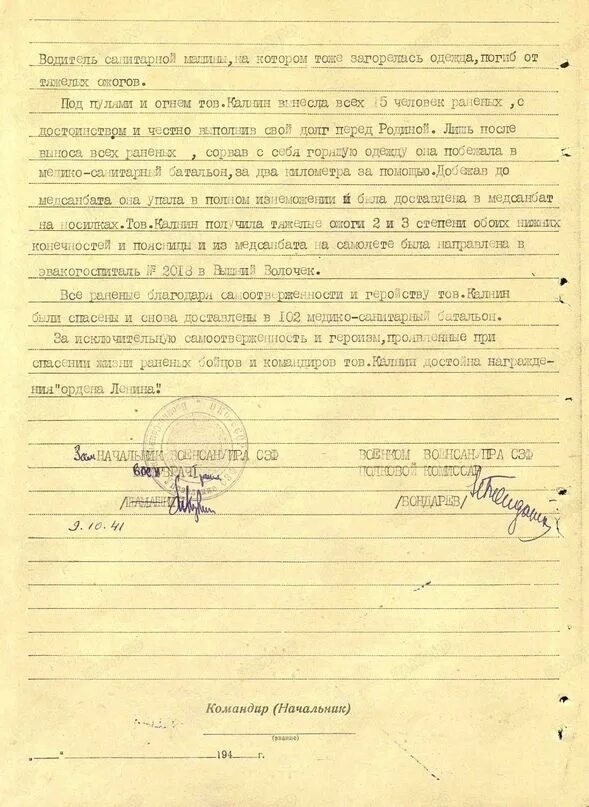 Водитель санитарной машины, на котором тоже загорелась одежда, погиб от
тяжелых ожогов.
Под пулями и огнем тов. Калнин вынесла всех 15 человек раненых, с
достоинством и честно выполнив свой долг перед Родиной. Лишь после
выноса всех раненых , сорвав с себя горящую одежду она побежала в
медико-санитарный батальон, за два километра за помощью. Добежав до
медсанбата она упала в полном изнеможении и была доставлена в медсанбат
на носилках. Тов. Калнин получила тяжелые ожоги 2 и 3 степени обоих нижних
конечностей и поясницы и из медсанбата на самолете была направлена в
эвакогоспиталь № 2018 в Вышний Волочек.
Все раненые благодаря самоотверженности и геройству тов. Калнин
были спасены и снова доставлены в 102 медико-санитарный батальон.
За исключительную самоотверженность и героизм, проявленные при
спасении жизни раненых бойцов и командиров тов. Калнин достойна награжде-
ния "ордена Ленина".
Зам НАЧАЛЬНИК ВОЕНСАНУПРА СЗФ ВОЕНКОМ ВОЕНСАНУПРА СЗФ
ВОЕНВРАЧ 1 ранга ПОЛКОВОЙ КОМИССАР
/БОНДАРЕВ/
9.10.41
Командир (Начальник)
(звание)
" " 194 г.